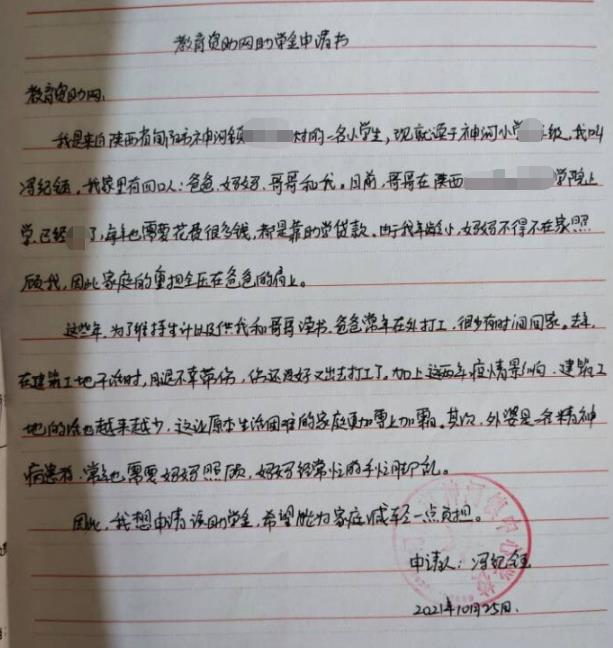 教育资助网助学金申请书
教育资助网:
我是来自陕西省旬阳市神河镇村的一名小学生,现就读于神河小学年级,我叫
冯纪钰。我家里有四口人:爸爸、妈妈、哥哥和我。目前,哥哥在陕西学院上
学,已经了,每年也需要花费很多钱,都是靠助学贷款。由于我年龄小,妈妈不得不在家照
顾我,因此家庭的重担全压在爸爸的肩上。
这些年,为了维持生计以及供我和哥哥读书,爸爸常年在外打工,很少有时间回家。去年
在建筑工地干活时,用退不幸带伤,伤还没好又出去打工了。加上这两年疫情影响,建筑工
地的活也越来越少,这让原本生活困难的家庭更加雪上加霜。其次,外婆是一名精神
病患者,常年也需要妈妈照顾,妈妈经常忙的手忙脚乱。
因此,我想申请该助学金,希望能为家庭减轻一点负担。
申请人:冯纪钰
2021年10月25日.